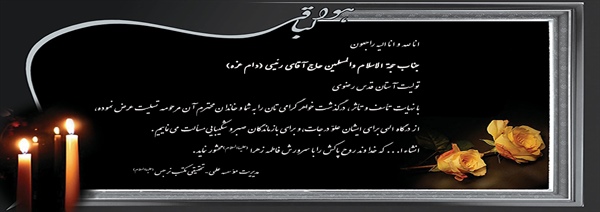 هو الباقی
انا لله و انا الیه راجعون
جناب حجة الاسلام والمسلمین حاج آقای رئیسی (دام عزه)
تولیت آستان قدس رضوی
با نهایت تاسف و تاثر، درگذشت خواهر گرامی تان را به شما و خاندان محترم آن مرحومه تسلیت عرض نموده،
از درگاه الهی برای ایشان علو درجات، و برای بازماندگان صبر و شکیبایی مسالت می نماییم.
انشاء ا... که خداوند روح پاکش را با سرورش فاطمه زهرا (علیها السلام) محشور نماید.
مدیریت مؤسسه علمی-تحقیقی مکتب نرجس (علیها السلام)